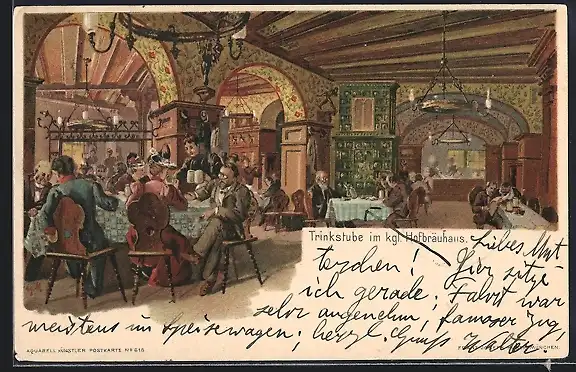 Trinkstube im kgl. Hofbräuhaus.
Liebes Mut
terchen! Hier sitze
ich gerade; Fahrt war
sehr angenehm, famoser Zug,
meistens im Speisewagen; herzl. Gruß Walter.
AQUARELL KÜNSTLER POSTKARTE No 616
MÜNCHEN.